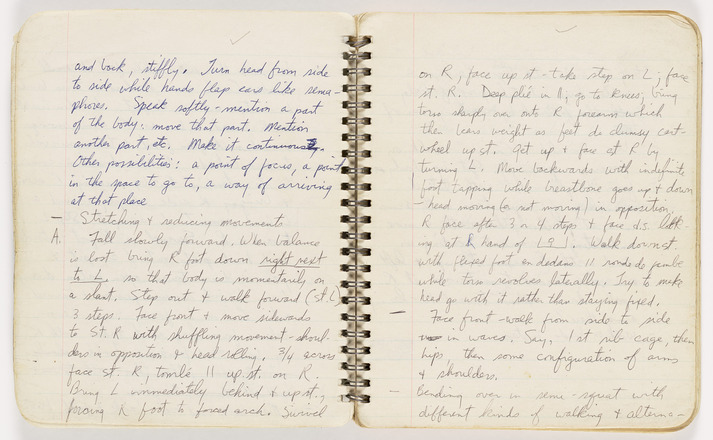 and back, stiffly. Turn head from side
to side while hands flap ears like sema-
phores. Speak softly - mention a part
of the body: move that part. Mention
another part, etc. Make it continuous.
Other possibilities: a point of focus, a point
in the space to go to, a way of arriving
at that place
— Stretching & reducing movements
A. Fall slowly forward. When balance
is lost bring R foot down right next
to L, so that body is momentarily on
a slant. Step out & walk forward (st. L)
3 steps. Face front & move sidewards
to St. R with shuffling movement - shoul-
ders in opposition & head rolling. 3/4 across
face st. R, tombé || up st. on R.
Bring L immediately behind & up st.,
forcing R foot to forced arch. Swivel
on R, face up st - take step on L; face
st. R. Deep plié in ||, go to knees, bring
torso sharply over onto R forearm which
then bears weight as feet do clumsy cart-
wheel up st. Get up & face st R by
turning L. Move backwards with indefinite
foot tapping while breastbone goes up & down
- head moving (or not moving) in opposition.
R face after 3 or 4 steps & face d.s. look-
ing at R hand of Walk down st
with flexed foot en dedans || ronde de jambe
while torso revolves laterally. Try to make
head go with it rather than staying fixed.
— Face front - walk from side to side
in waves. Say, 1st rib cage, then
hips, then some configuration of arms
& shoulders.
— Bending over in semi-squat with
different kinds of walking & alterna-